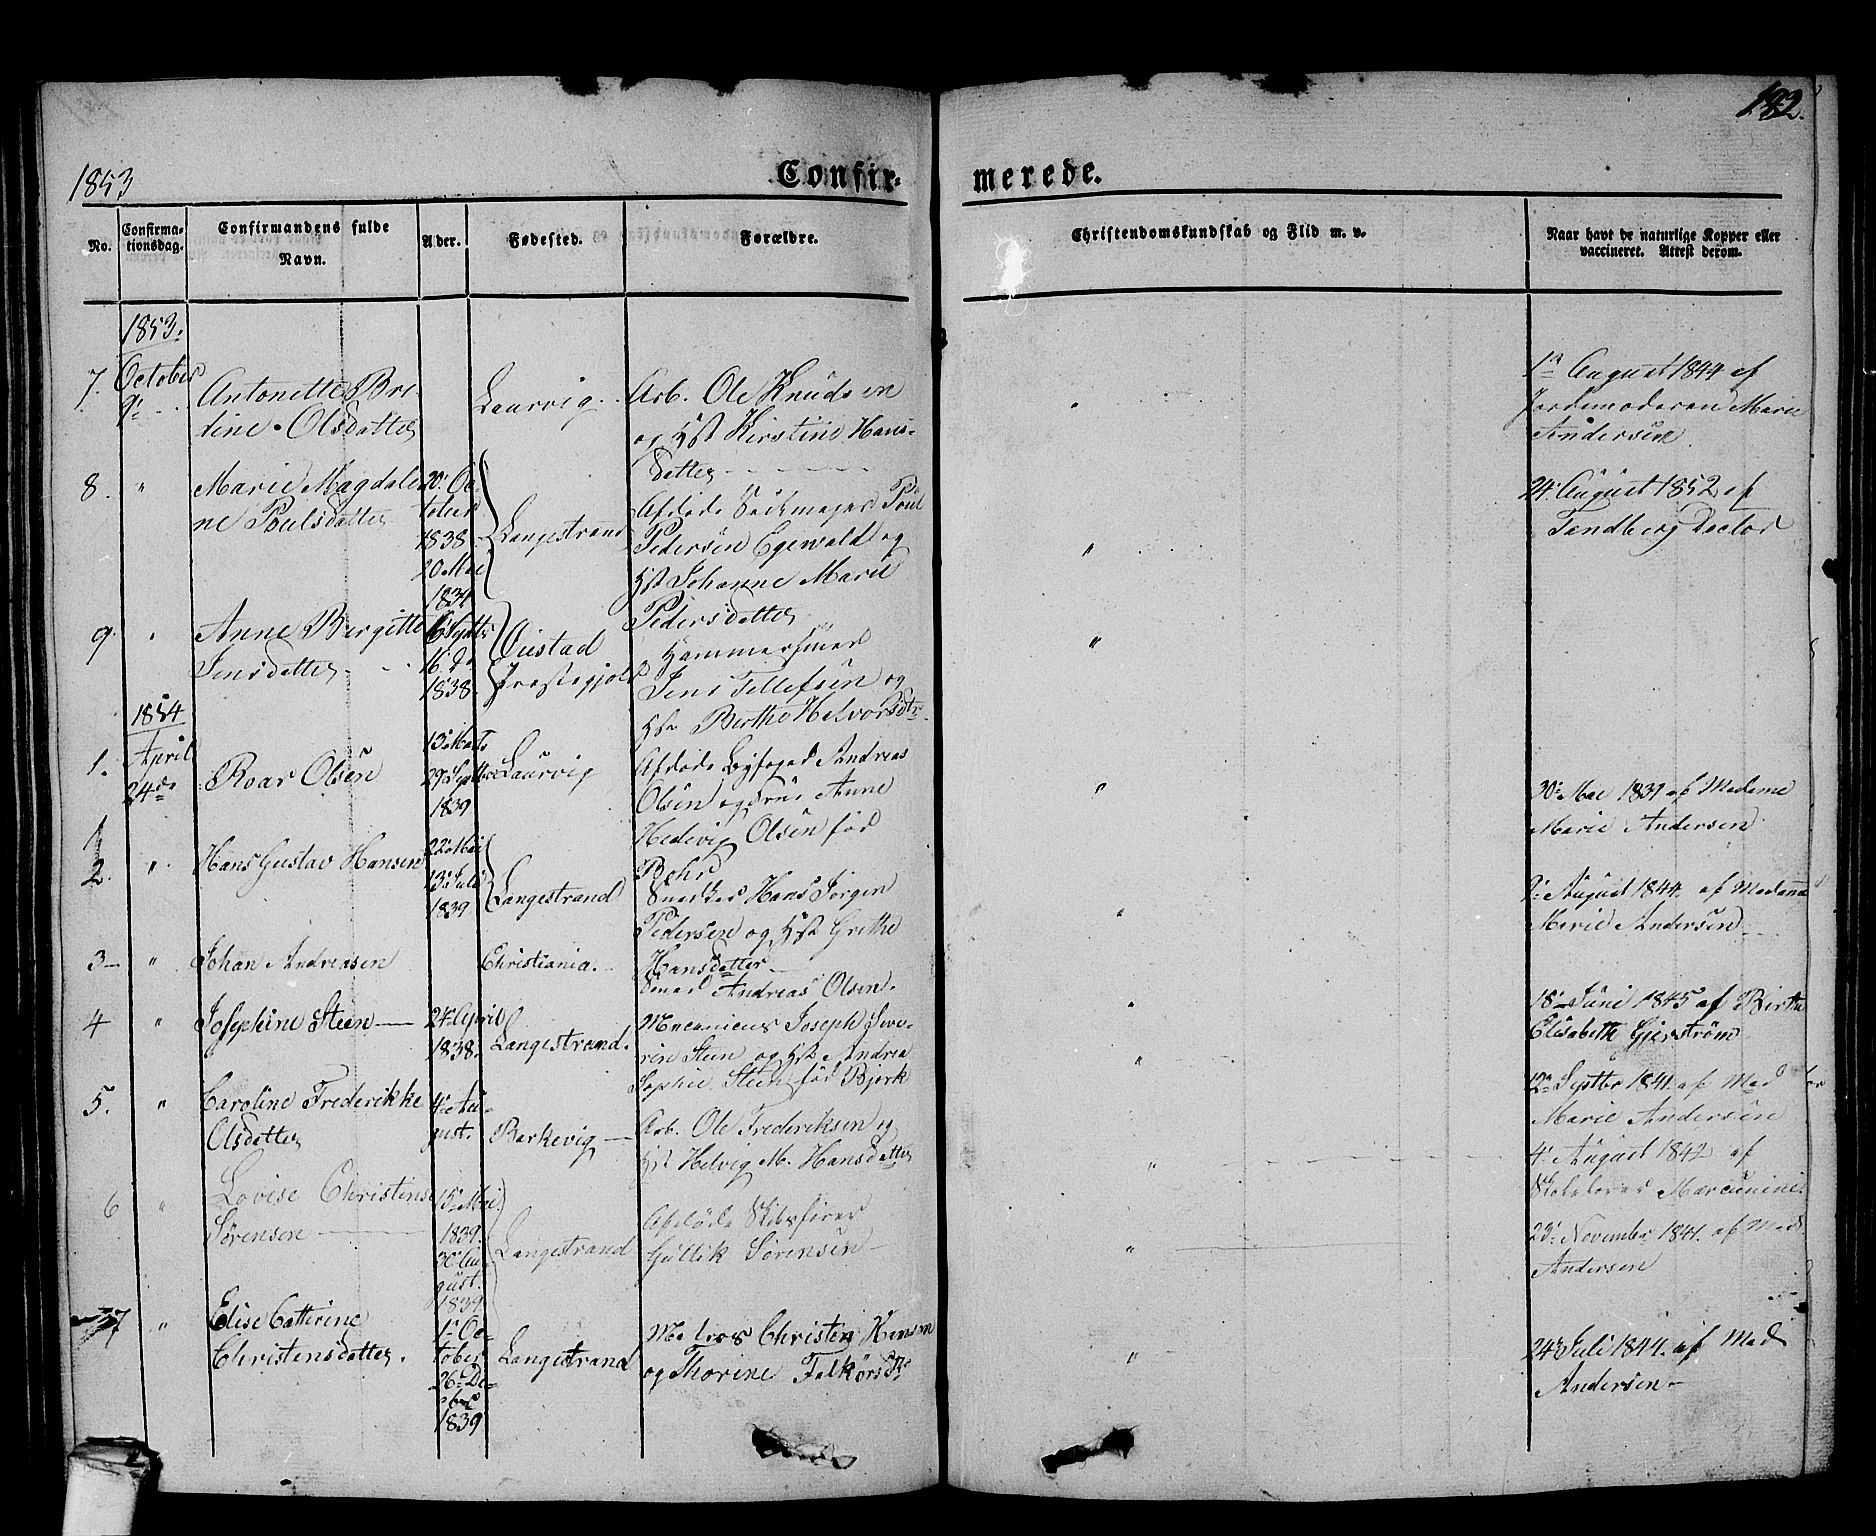 182.
1853
Confir-
merede.
No.
Confirma-
tionsdag.
Confirmandens fulde
Navn.
Alder.
Fødested.
Forældre.
Christendomskundskab og Flid m. v.
Naar havt de naturlige Kopper eller
vaccineret. Attest derom.
1853.
7. October
9de
Antonette Bre-
dine Olsdatter
Laurvig
Arb. Ole Knudsen
og Hst Kirstine Hans-
datter
"
1ste August 1844 af
Jordemoderen Marie
Andersen
8. "
Marie Magdale
ne Poulsdatter
20de Oc-
tober
1838
20 Mai
1834
Langestrand
Afdøde Poul
Pedersen Egewald og
Hst Johanne Marie
Pedersdatter
"
24de August 1852 af
Sandberg Doctor
9. "
Anne Birgitte
Jensdatter
16 Septbr
16 do
1838
Øiestad
Præstegjeld
Hammersmed
Jens Tellefsen og
Hst Birthe Helvorsdtr
"
1854
1. April
24de
Roar Olsen
13de Marts
29 Septbr
1839
Laurvig
Afdøde Byfoged Andreas
Olsen og Frue Anne
Hedevig Olsen fød
Bohr
"
30te Mai 1839 af Madame
Marie Andersen
2. "
Hans Gustav Hansen
22de Mai
13de Juli
1839
Langestrand
Snedker Hans Jørgen
Pedersen og Hst Grethe
Hansdatter
"
9de August 1844 af Madame
Marie Andersen
3 "
Johan Andreasen
Christiania.
Smed Andreas Olsen.
"
18de Juni 1845 af Birthe
Elisabeth Gjerstrøm
4 "
Josephine Steen
24de April
1838.
Langestrand.
Mecanicus Joseph Seve-
rin Steen og Hst Andrea
Sophie Steen fød Bjerk
"
12te Septbr 1841 af Mad
Marie Andersen
5. "
Caroline Frederikke
Olsdatter
4de Au-
gust.
Barkevig
Arb. Ole Frederiksen og
Hst Helvig M. Hansdatter
"
4de August 1842 af
Skolelærer
6 "
Lovise Christine
Sørensen
15de Mai
1839.
30te Au
gust.
1839
Langestrand
Afdøde Skibsfører
Gullik Sørensen
"
23de November 1841 af Mad
Andersen
7 "
Elise Cathrine
Christensdatter.
1ste Oc-
tober
26de De-
cbr
1839
Langestrand
Matros Christen Hansen
og Thorine Falkørsdtr
"
24de Juli 1844 af Mad
Andersen